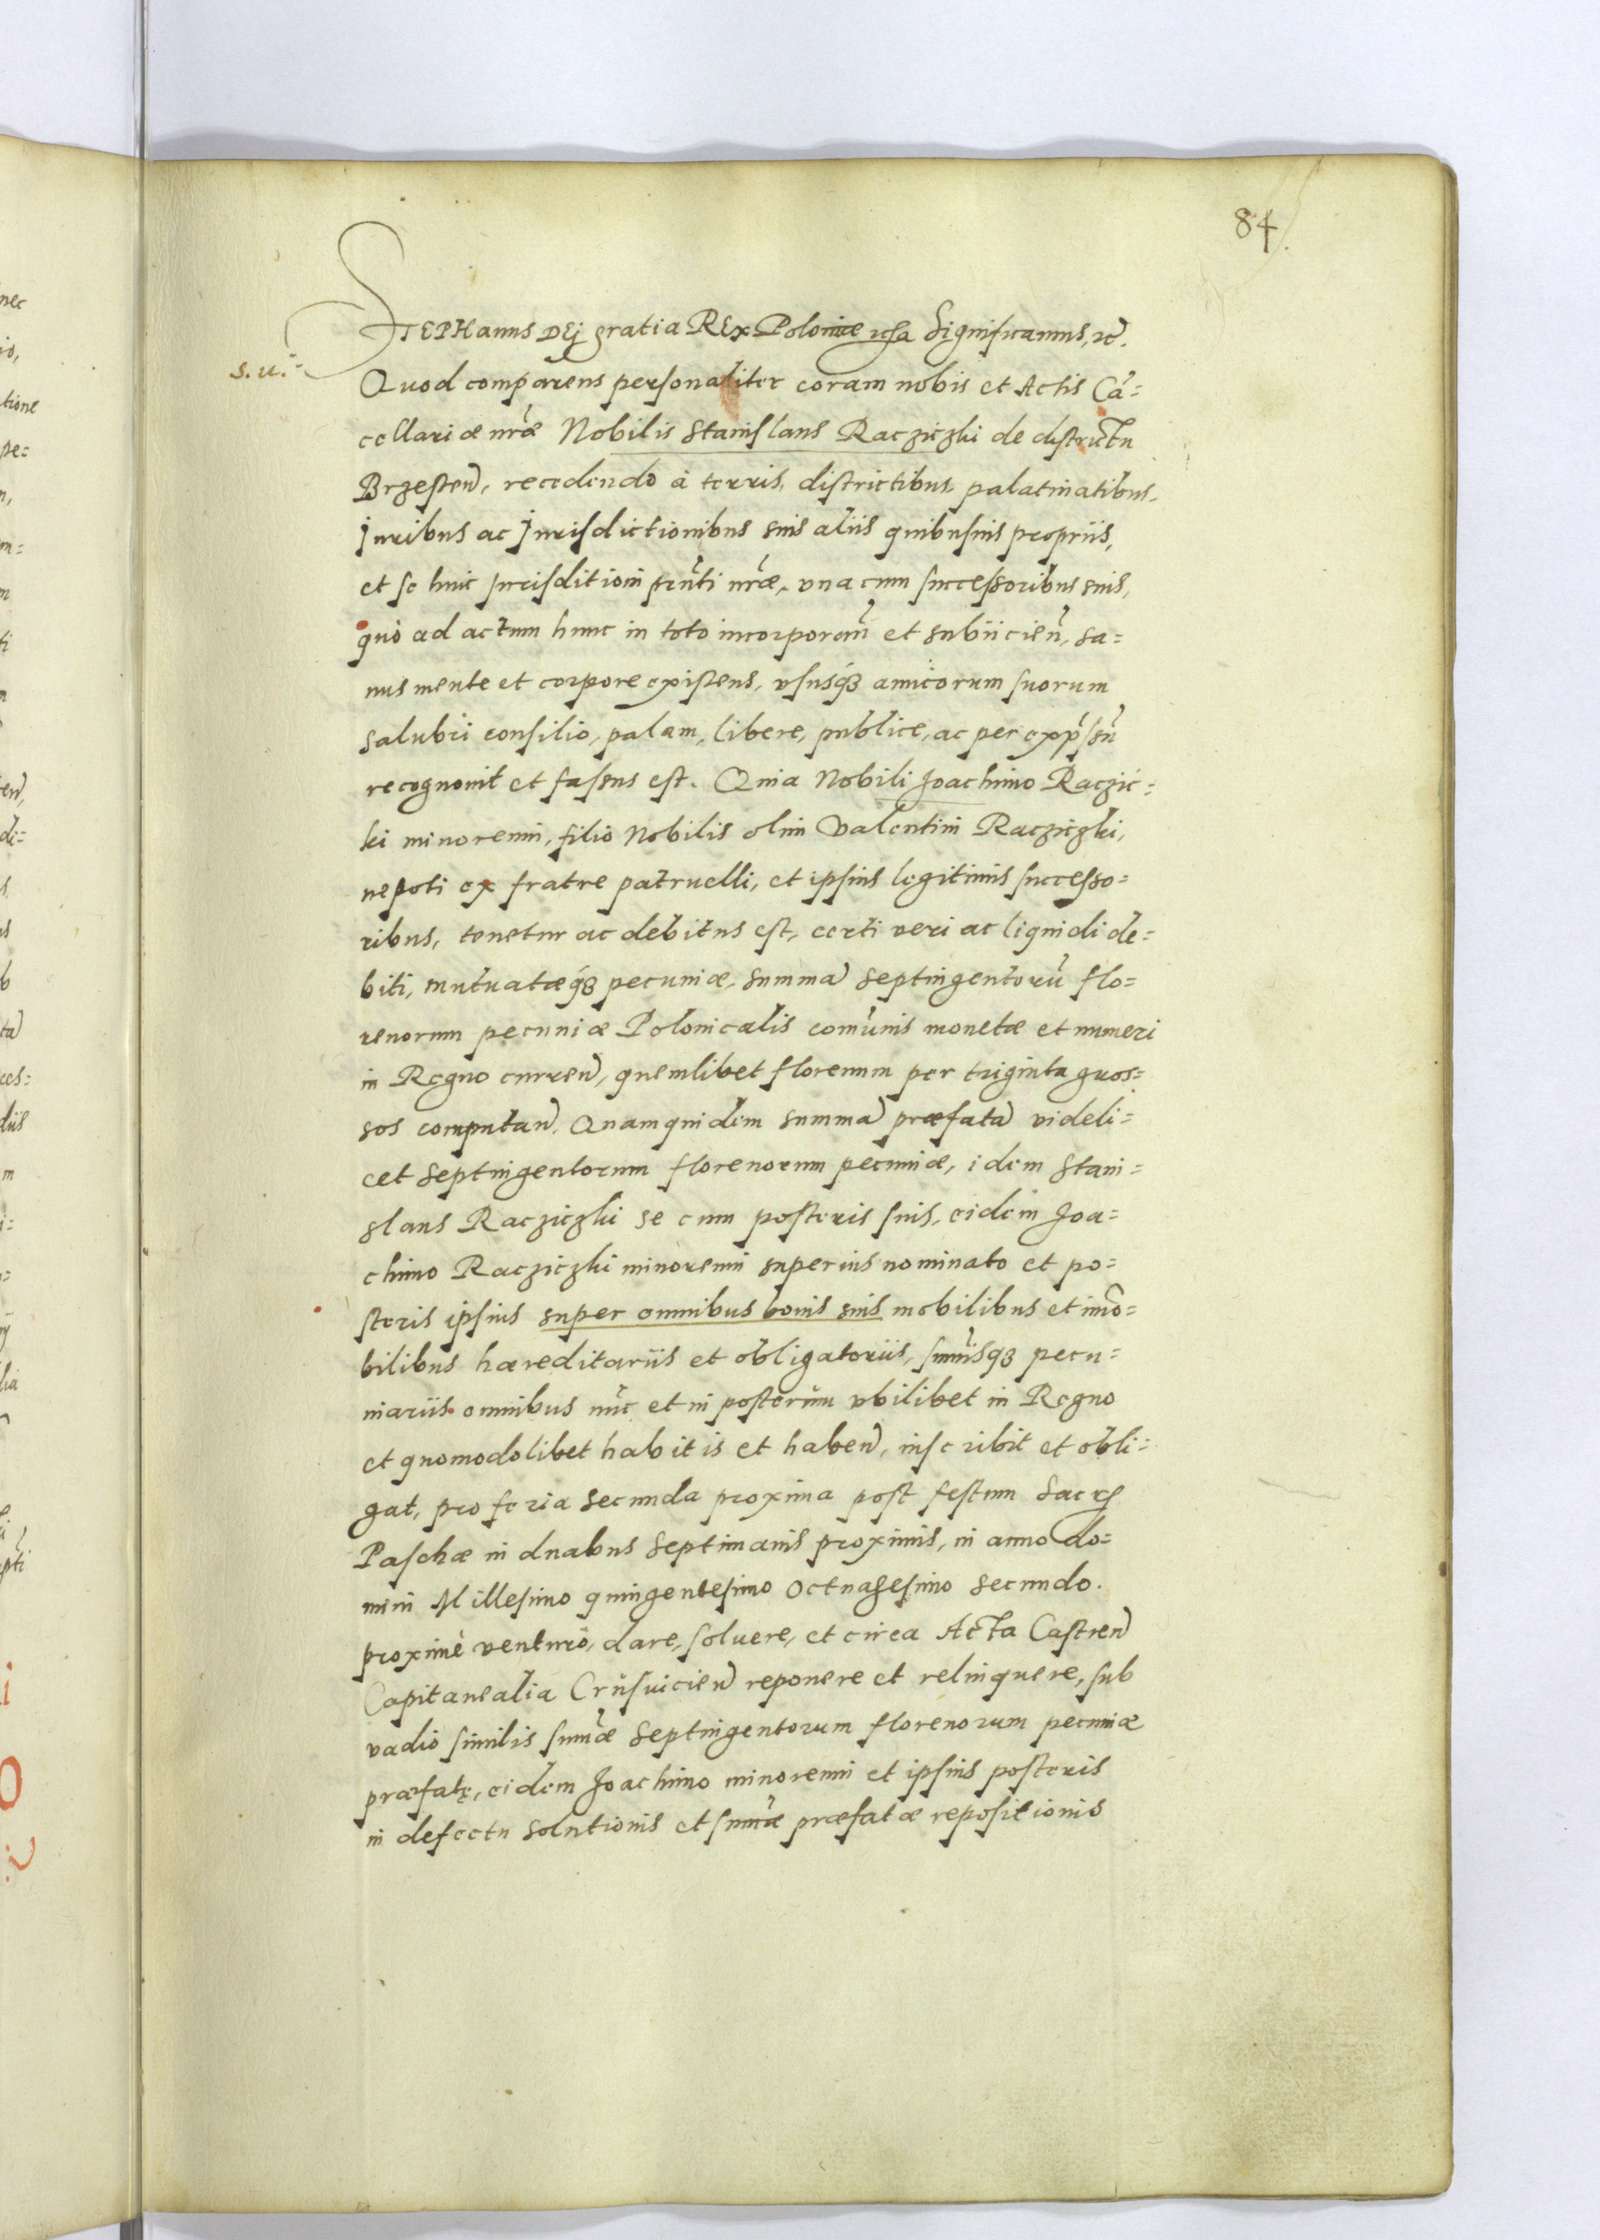 84.
STEPHanus DEj gratia REx Poloniæ Significamus, &c.
s. u.
Quod comparens personaliter coram nobis et Actis Cã=
cellariæ nr̃æ Nobilis Stanislaus Racziczki de districtu
Brzesteñ, recedendo à terris, districtibus, palatinatibus,
Juribus ac Jurisdictionibus suis aliis quibusuis propriis,
et se huic Jurisditioni prñti nr̃æ, vna cum successoribus suis,
quò ad actum hunc in toto incorporañ et subiicieñ, sa=
nus mente et corpore existens, vsusq́ʒ amicorum suorum
salubri consilio, palam, libere, publice, ac per exp̃ssũ
recognouit et fassus est. Quia Nobili Joachimo Raczic=
ki minorenni, filio Nobilis olim Valentini Racziczki,
nepoti ex fratre patruelli, et ipsius legitimis successo=
ribus, tenetur ac debitus est, certi veri ac liquidi de=
biti, mutuatæq́ʒ pecuniæ, summã septingentorũ flo=
renorum pecuniæ Polonicalis com̃unis monetæ et numeri
in Regno curreñ, quemlibet florenum per triginta gros=
sos computañ. Quamquidem summã præfatã videli=
cet septingentorum florenorum pecuniæ, idem Stani=
slaus Racziczki se cum posteris suis, eidem Joa=
chimo Racziczki minorenni superius nominato et po=
steris ipsius super omnibus bonis suis mobilibus et im̃o=
bilibus hæreditariis et obligatoriis, sum̃isqʒ pecu=
niariis omnibus nũc et in posterũm vbilibet in Regno
et quomodolibet habitis et habeñ, inscribit et obli=
gat, pro feria secunda proxima post festum Sacrę
Paschæ in duabus septimanis proximis, in anno do=
mini Millesimo quingentesimo octuagesimo secundo.
proximè venturo, dare, soluere, et circa Acta Castreñ
Capitanealia Crusuicieñ reponere et relinquere, sub
vadio similis sum̃æ septingentorum florenorum pecuniæ
præfatę, eidem Joachimo minorenni et ipsius posteris
in defectu solutionis et sum̃æ præfatæ repositionis